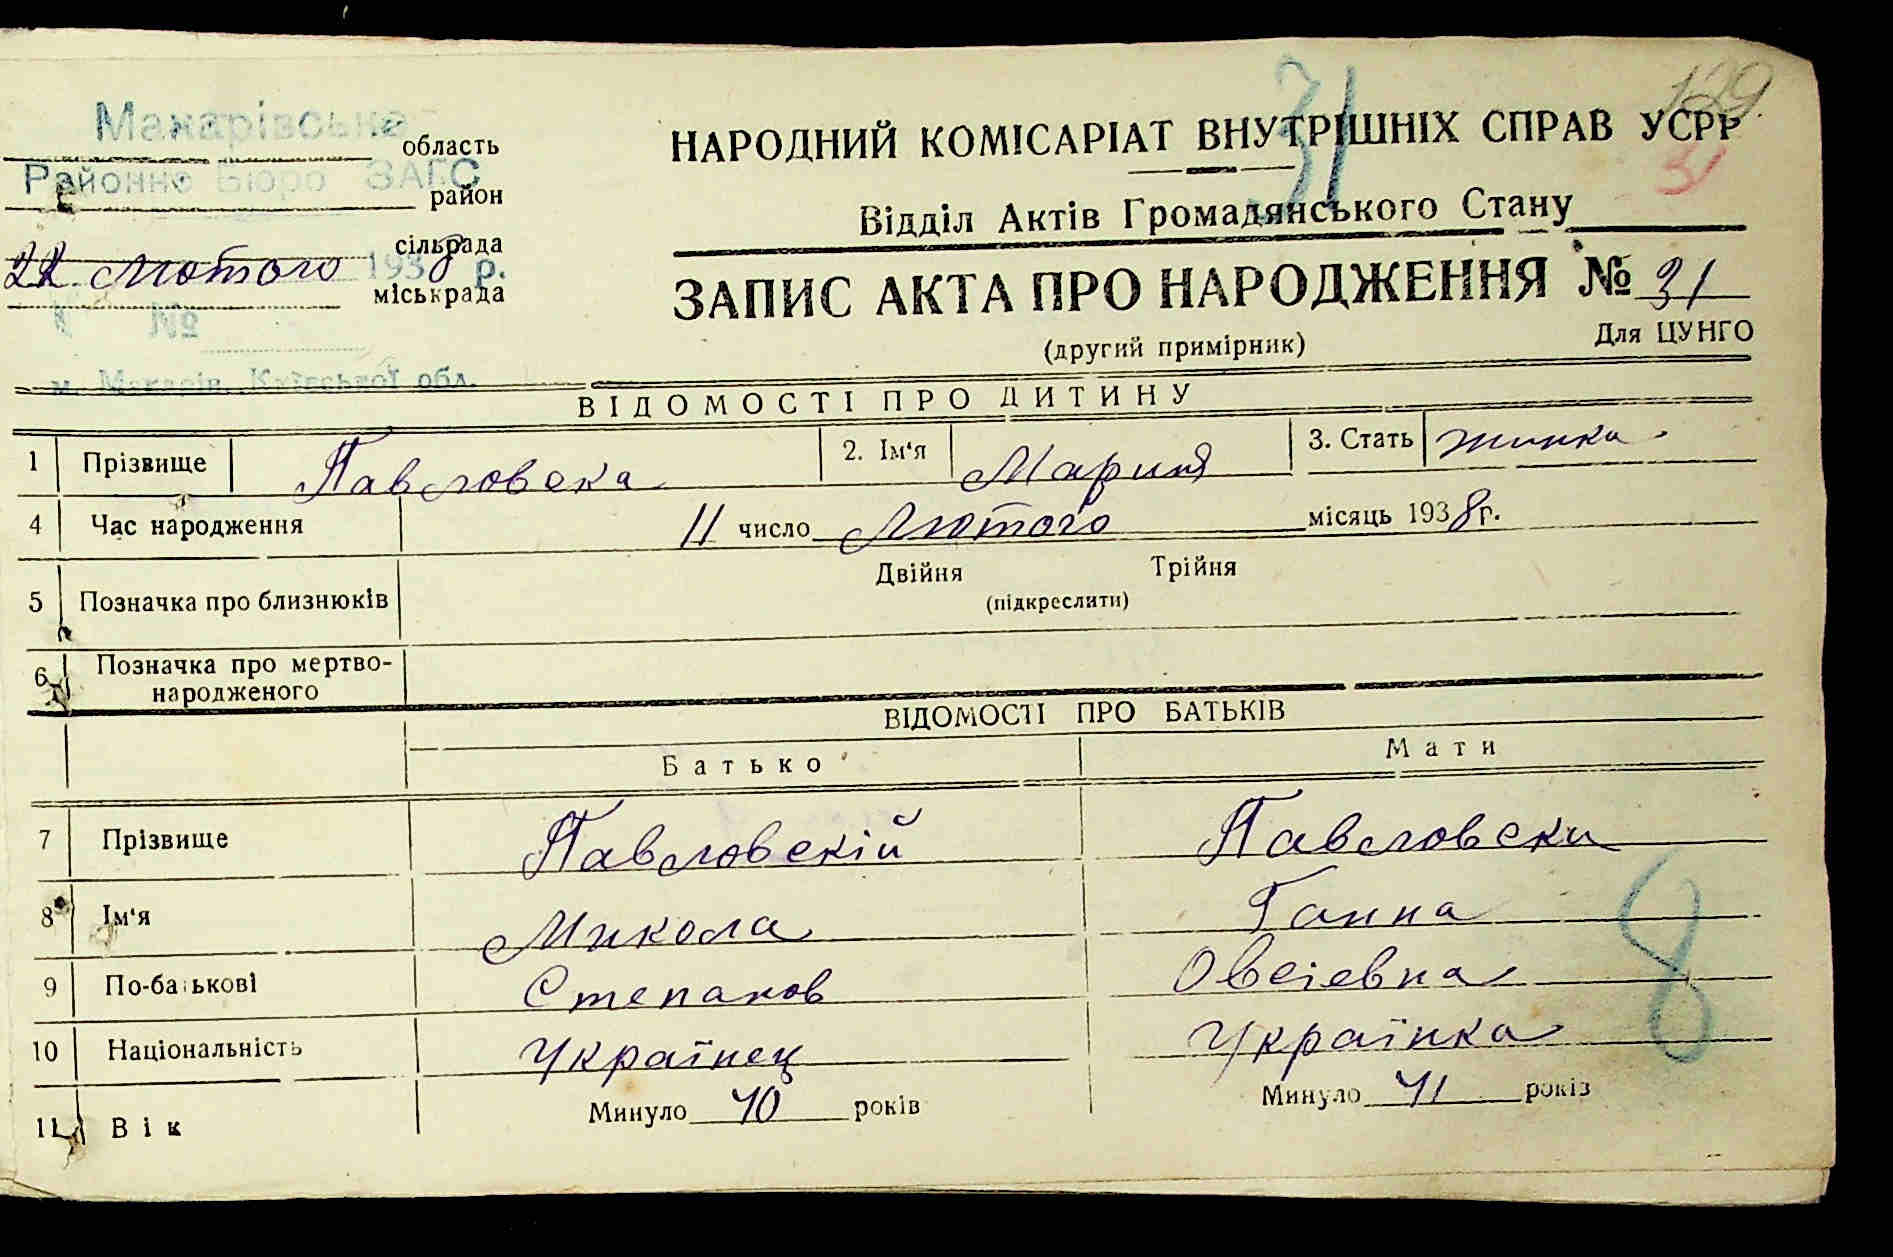 129
31
НАРОДНИЙ КОМІСАРІАТ ВНУТРІШНІХ СПРАВ УСРР
31
Відділ Актів Громадянського Стану
Макарівське область
Районне Бюро ЗАГС район
сільрада
22 Лютого 1938 р.
міськрада
№
м. Макарів, Київської обл.
ЗАПИС АКТА ПРО НАРОДЖЕННЯ № 31
(другий примірник) Для ЦУНГО
ВІДОМОСТІ ПРО ДИТИНУ
1 Прізвище Павловска 2. Ім'я Мария 3. Стать жинка
4 Час народження 11 число Лютого місяць 1938 р.
5 Позначка про близнюків Двійня Трійня
(підкреслити)
6 Позначка про мертво-
народженого
ВІДОМОСТІ ПРО БАТЬКІВ
Батько Мати
7 Прізвище Павловскій Павловски
8 Ім'я Микола Ганна
9 По-батькові Степанов Овсіевна
10 Національність Українец Українка
8
11 Вік Минуло 40 років Минуло 41 років